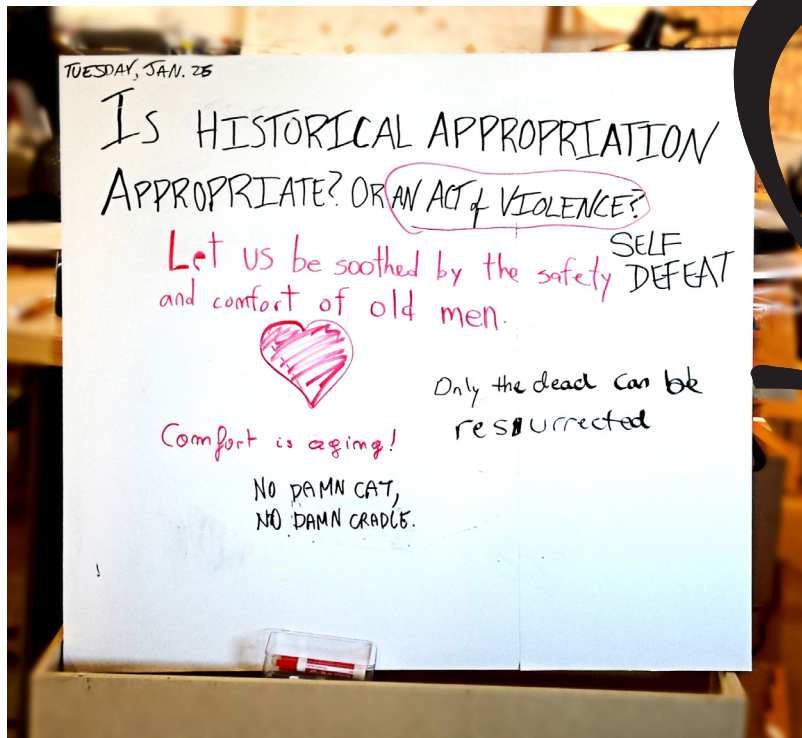 TUESDAY, JAN. 25
IS HISTORICAL APPROPRIATION
APPROPRIATE? OR AN ACT of VIOLENCE?
SELF
DEFEAT
Let us be soothed by the safety
and comfort of old men.
Only the dead can be
resurrected
Comfort is aging!
NO DAMN CAT,
NO DAMN CRADLE.